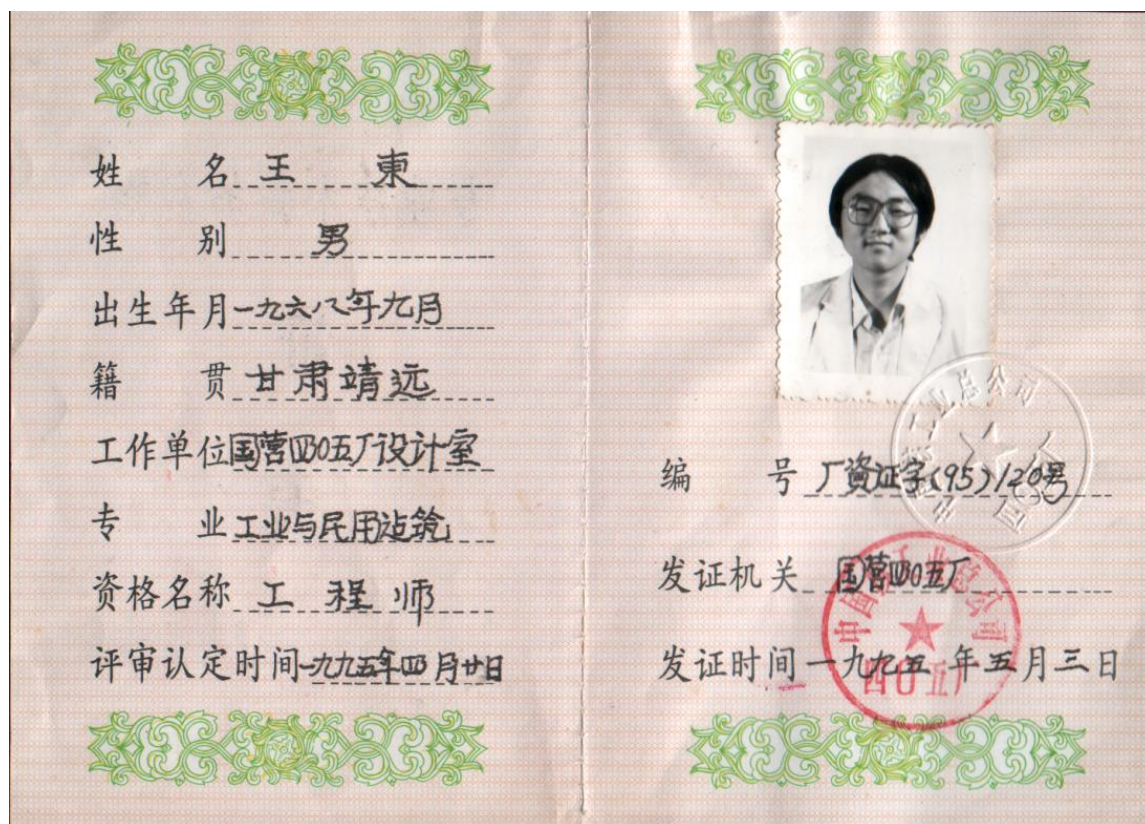 姓名 王東
性别 男
出生年月 一九六八年九月
籍贯 甘肃靖远
工作单位 国营四0五厂设计室
专业 工业与民用建筑
资格名称 工程师
评审认定时间 一九九五年四月廿日
编号 厂資证字(95)120号
发证机关 国营四0五厂
发证时间 一九九五年五月三日
中国核工业总公司
四0五厂